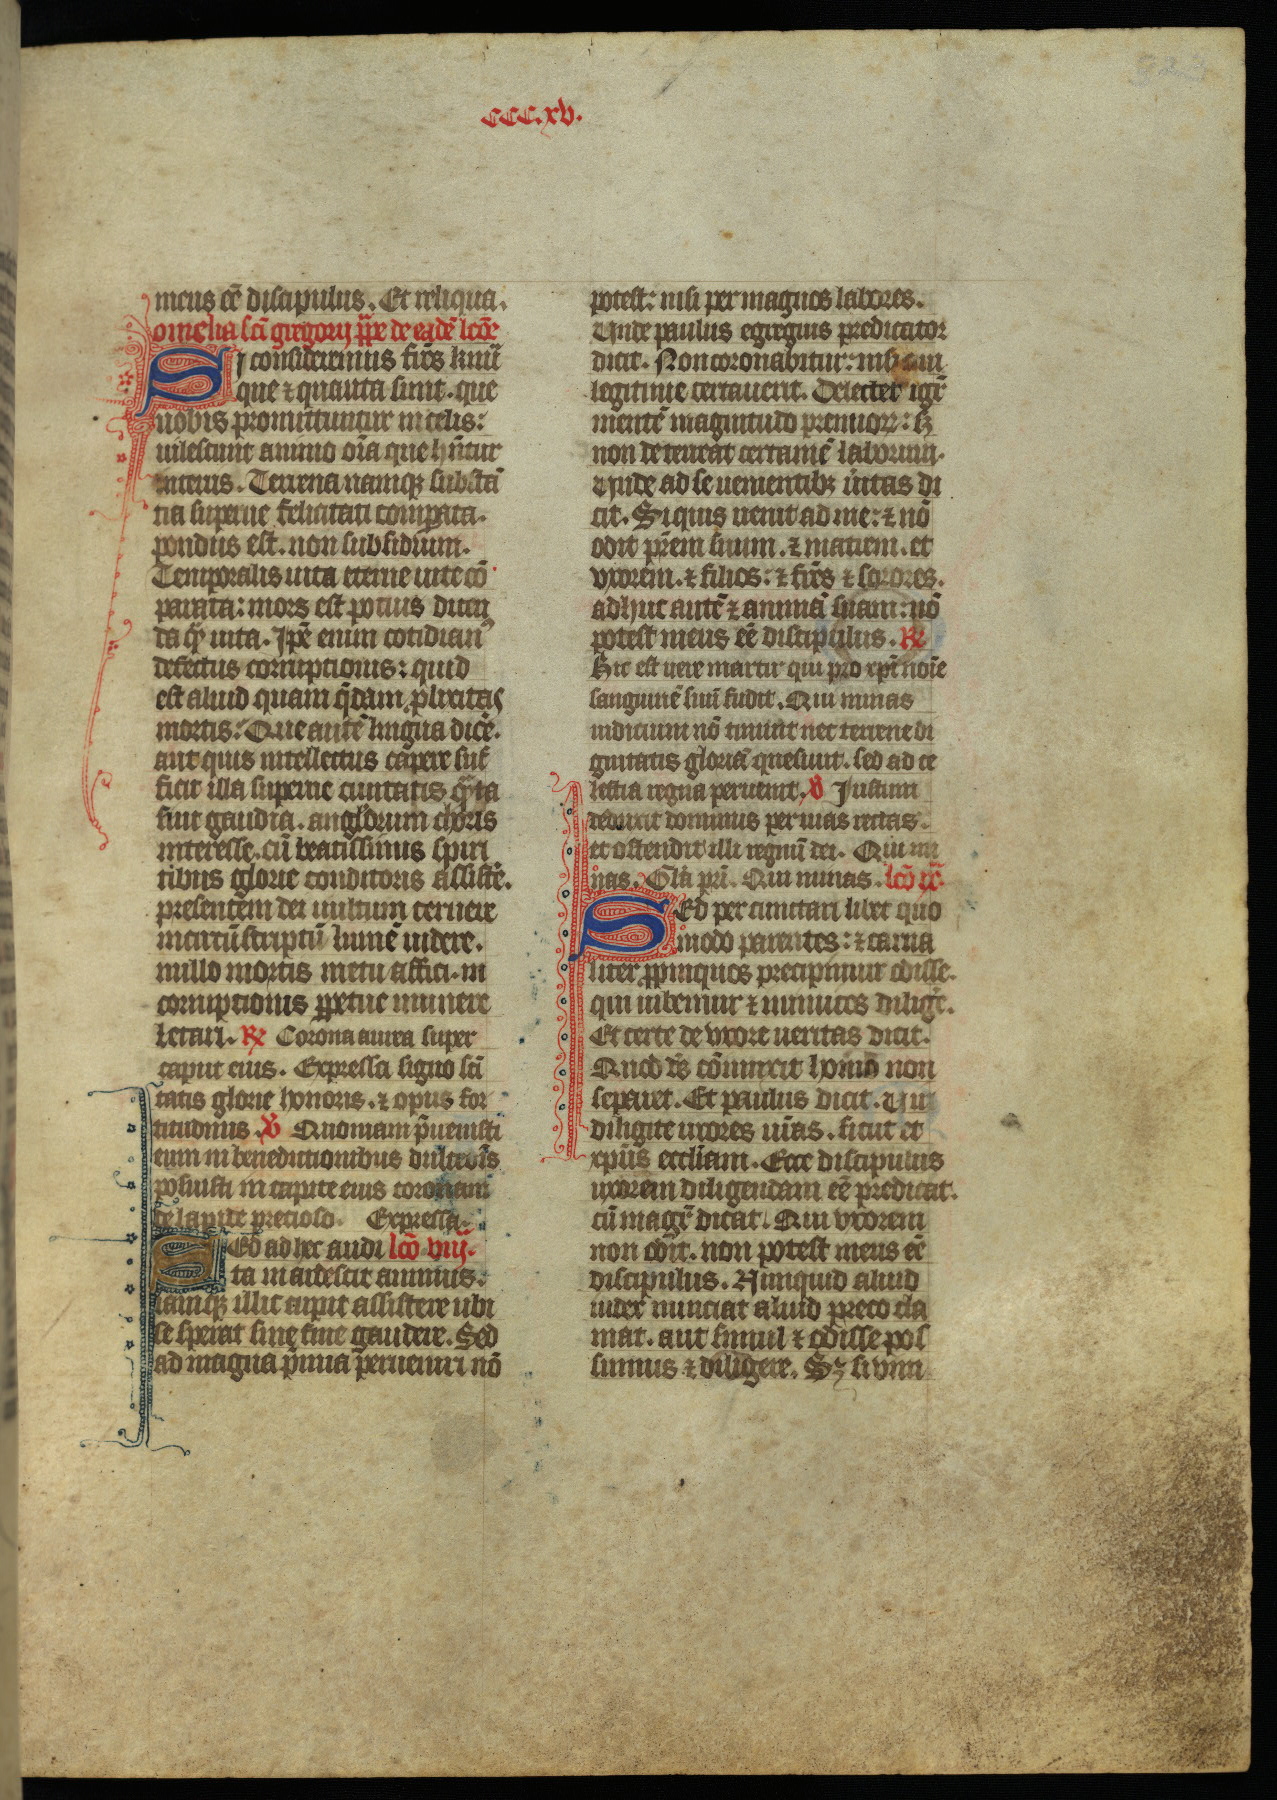 ccc.xv.
meus eē discipulus. Et reliqua.
omelia scī gregorij ꝑpe de eadē lcōe
Si consideremus frēs kmi
que ⁊ quanta sunt. que
nobis promittuntur in celis:
uilescunt animo oīa que hn̄tur
in terris. Terrena namqꝫ substā
tia superne felicitati compata.
pondus est. non subsidium.
Temporalis uita eterne uite cō
parata: mors est potius dicen
da qͣ uita. Ipē enim cotidian⁹
defectus corruptionis: quid
est aliud quam q̄dam plixitas
mortis: Que autē lingua dicē.
aut quis intellectus capere suf
ficit illa superne ciuitatis qͣta
sint gaudia. anglorum choris
interesse. cū beatissimis spiri
tibus glorie conditoris assistē.
presentem dei uultum cernere
incircūscriptū lumē uidere.
nullo mortis metu affici. in
corruptionis ꝑpetue munere
letari. ℟ Corona aurea super
caput eius. Expressa signo scī
tatis glorie honoris. ⁊ opus for
titudinis ℣ Quoniam p̄uenisti
eum in benedictionibus dulcedīs
posuisti in capite eius coronam
de lapide precioso. Expressa.
Sed ad hec audi lcō viij.
ta inardescit animus:
iamqꝫ illic cupit assistere ubi
se sperat sine fine gaudere. Sed
ad magna p̄mia peruenirī nō
potest: nisi per magnos labores.
Unde paulus egregius predicator
dicit. Non coronabitur: nisi qui
legitime certauerit. Delectet igī
mentē magnitudo premiorꝝ: sꝫ
non deterreat certamē laborum.
Unde ad se uenientibꝫ uītas di
cit. Si quis uenit ad me: ⁊ nō
odit prēm suum. ⁊ matrem. et
vxorem. ⁊ filios: ⁊ frēs ⁊ sorores.
adhuc autē ⁊ animā suam: nō
potest meus eē discipulus. ℟
Hic est uere martir qui pro xpī noīe
sanguinē suū fudit. Qui minas
iudicium nō timuit nec terrene di
gnitatis gloriā quesiuit. sed ad ce
lestia regna peruenit. ℣ Iustum
deduxit dominus per uias rectas.
et ostendit illi regnū dei. Qui mi
nas. Gla pri. Qui minas. lcō ix.
Sed percunctari libet quo
modo parentes: ⁊ carna
liter ꝓpinquos precipimur odisse.
qui iubemur ⁊ inimicos diligē.
Et certe de vxore ueritas dicit.
Quod dꝰ cōiunxit homo non
separet. Et paulus dicit. Uiri
diligite uxores ur̄as. sicut et
xpūs ecclīam. Ecce discipulus
uxorem diligendam eē predicat.
cū magr̄ dicat. Qui vxorem
non odit. non potest meus eē
discipulus. Nunquid aliud
iudex nunciat aliud preco cla
mat. aut simul ⁊ odisse pos
sumus ⁊ diligere. Sꝫ si vim